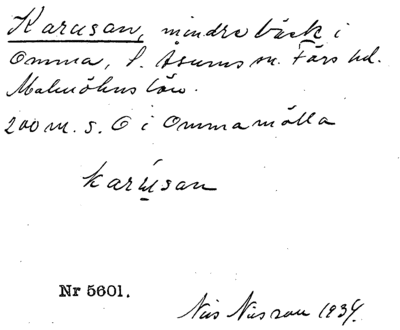 Karusan, mindre bäck i
Omma, S. Åsums sn. Färs hd.
Malmöhus län.
200 m. s. O i Ommamölla
karusan
Nr 5601.
Nils Nilsson 1934.